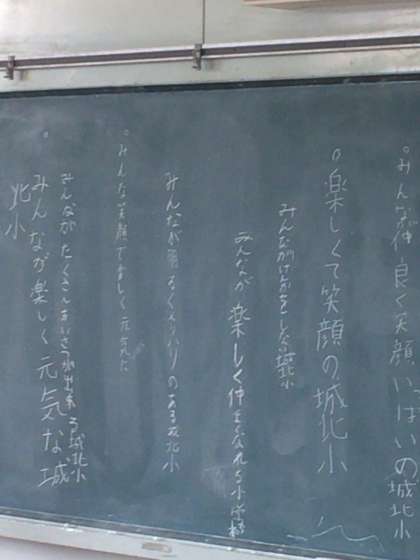 。みんなが仲良く笑顔いっぱいの城北小
。楽しくて笑顔の城北小
みんながけんかをしない城北小
みんなが楽しく仲良くなれる小学校
みんなが明るくメリハリのある城北小
。みんな笑顔で楽しく元気な
みんながたくさんあいさつが出来る城北小
みんなが楽しく元気な城
北小